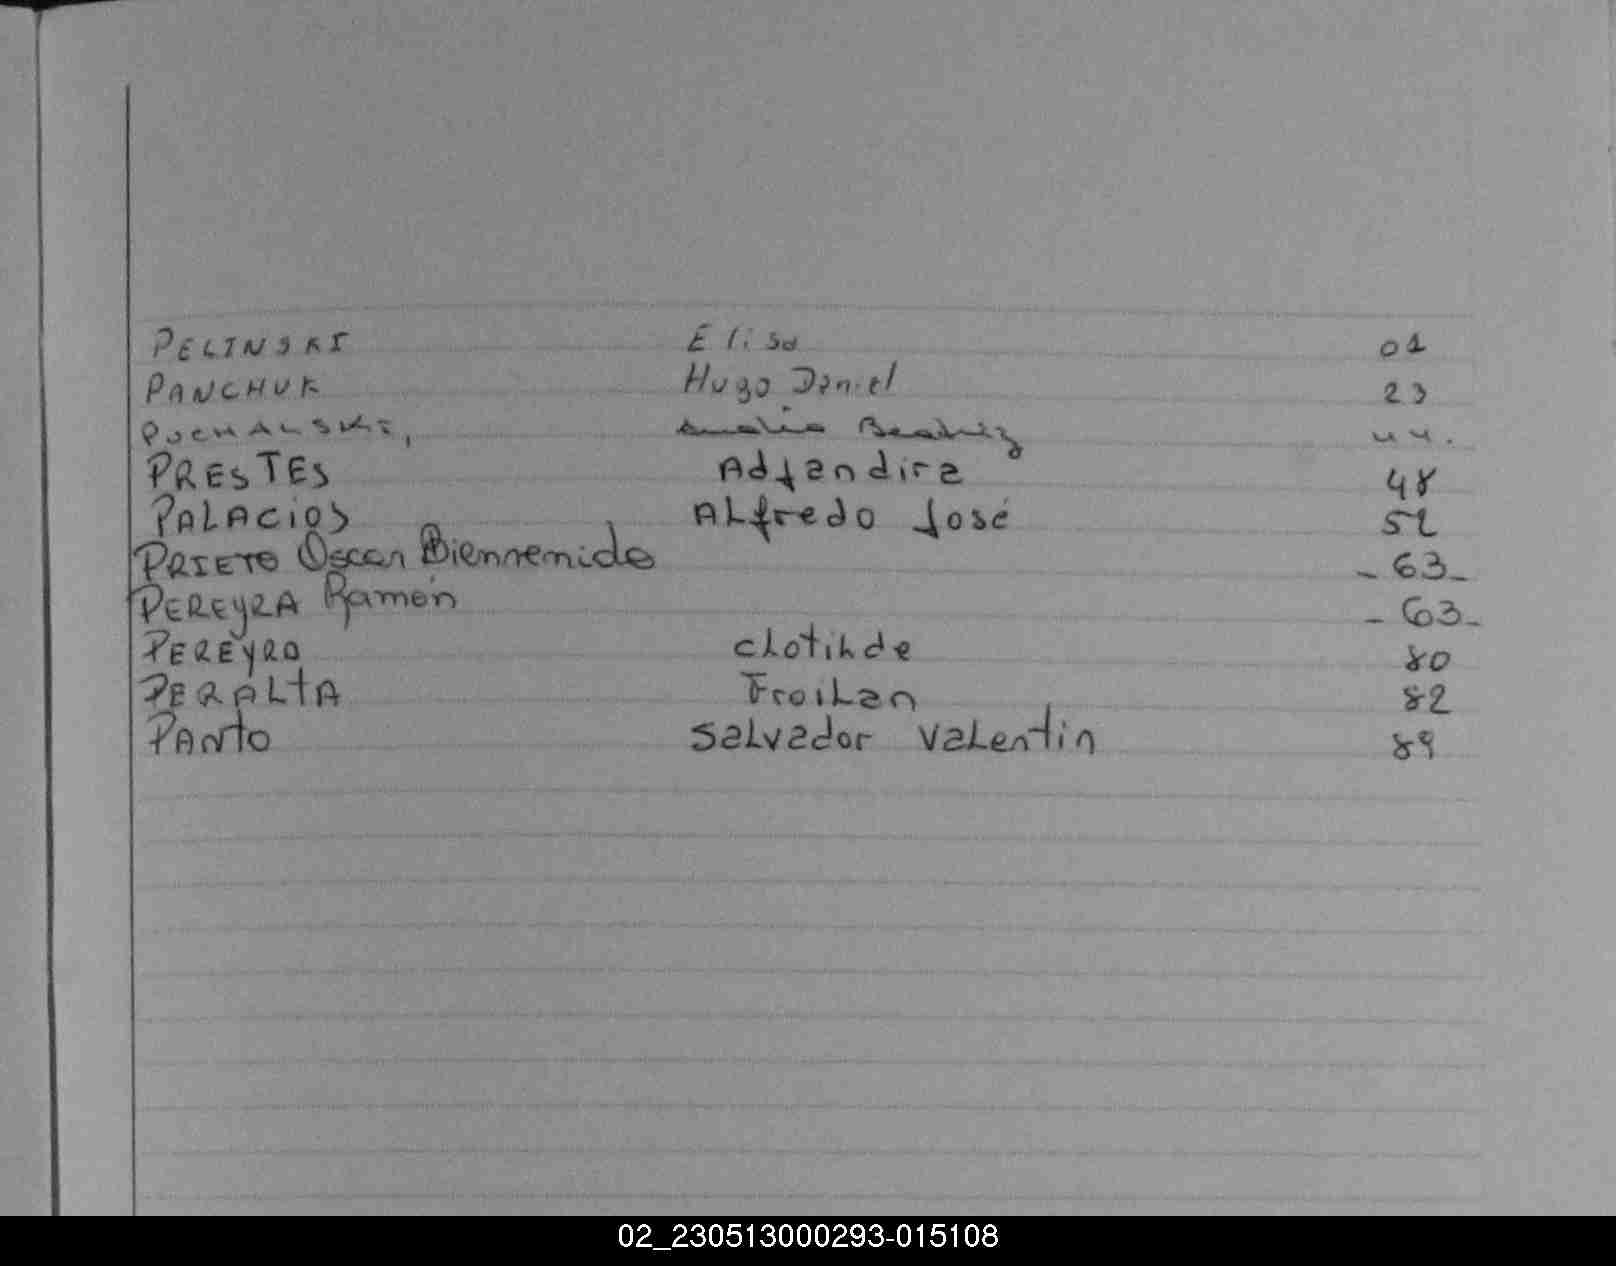 PELINSKI Elisa 01
PANCHUK Hugo Daniel 23
PUCHALSKI, Amalia Beatriz 44.
PRESTES Adjandira 48
PALACIOS ALfredo José 52
PRIETO Oscar Bienvenido - 63 -
PEREYRA Ramón - 63 -
PEREYRO CLotiLde 80
PERALTA FroiLan 82
PANTO SaLvador VaLentin 89
02_230513000293-015108